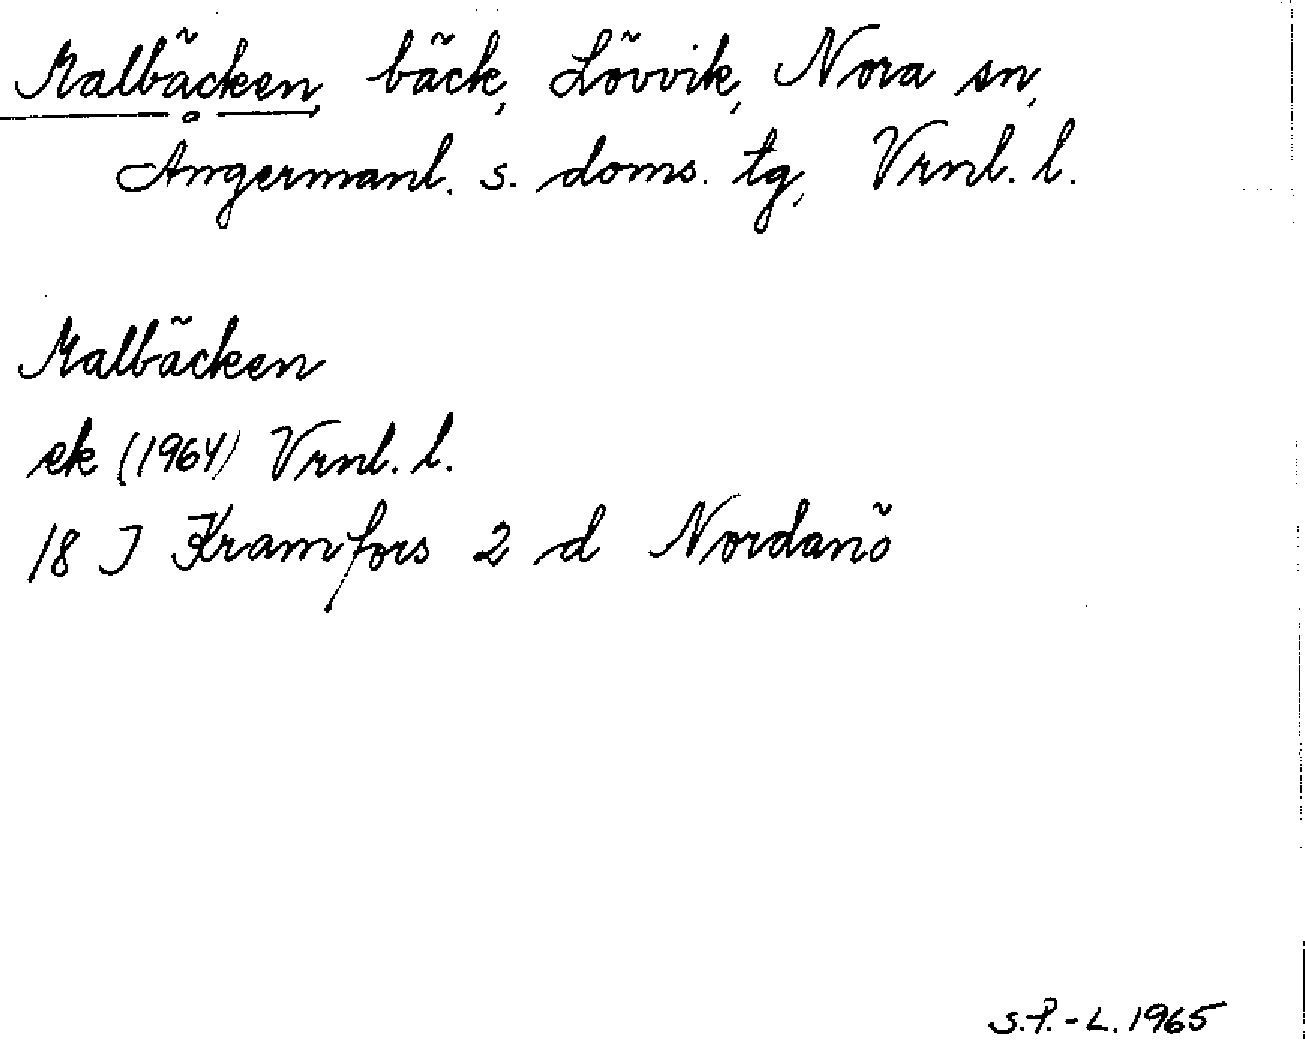 Malbäcken, bäck, Lövvik, Nora sn,
Ångermanl. s. doms. tg, Vrnl. l.
Malbäcken
ek (1964) Vrnl. l.
18 J Kramfors 2 d Nordanö
S.P.-L. 1965